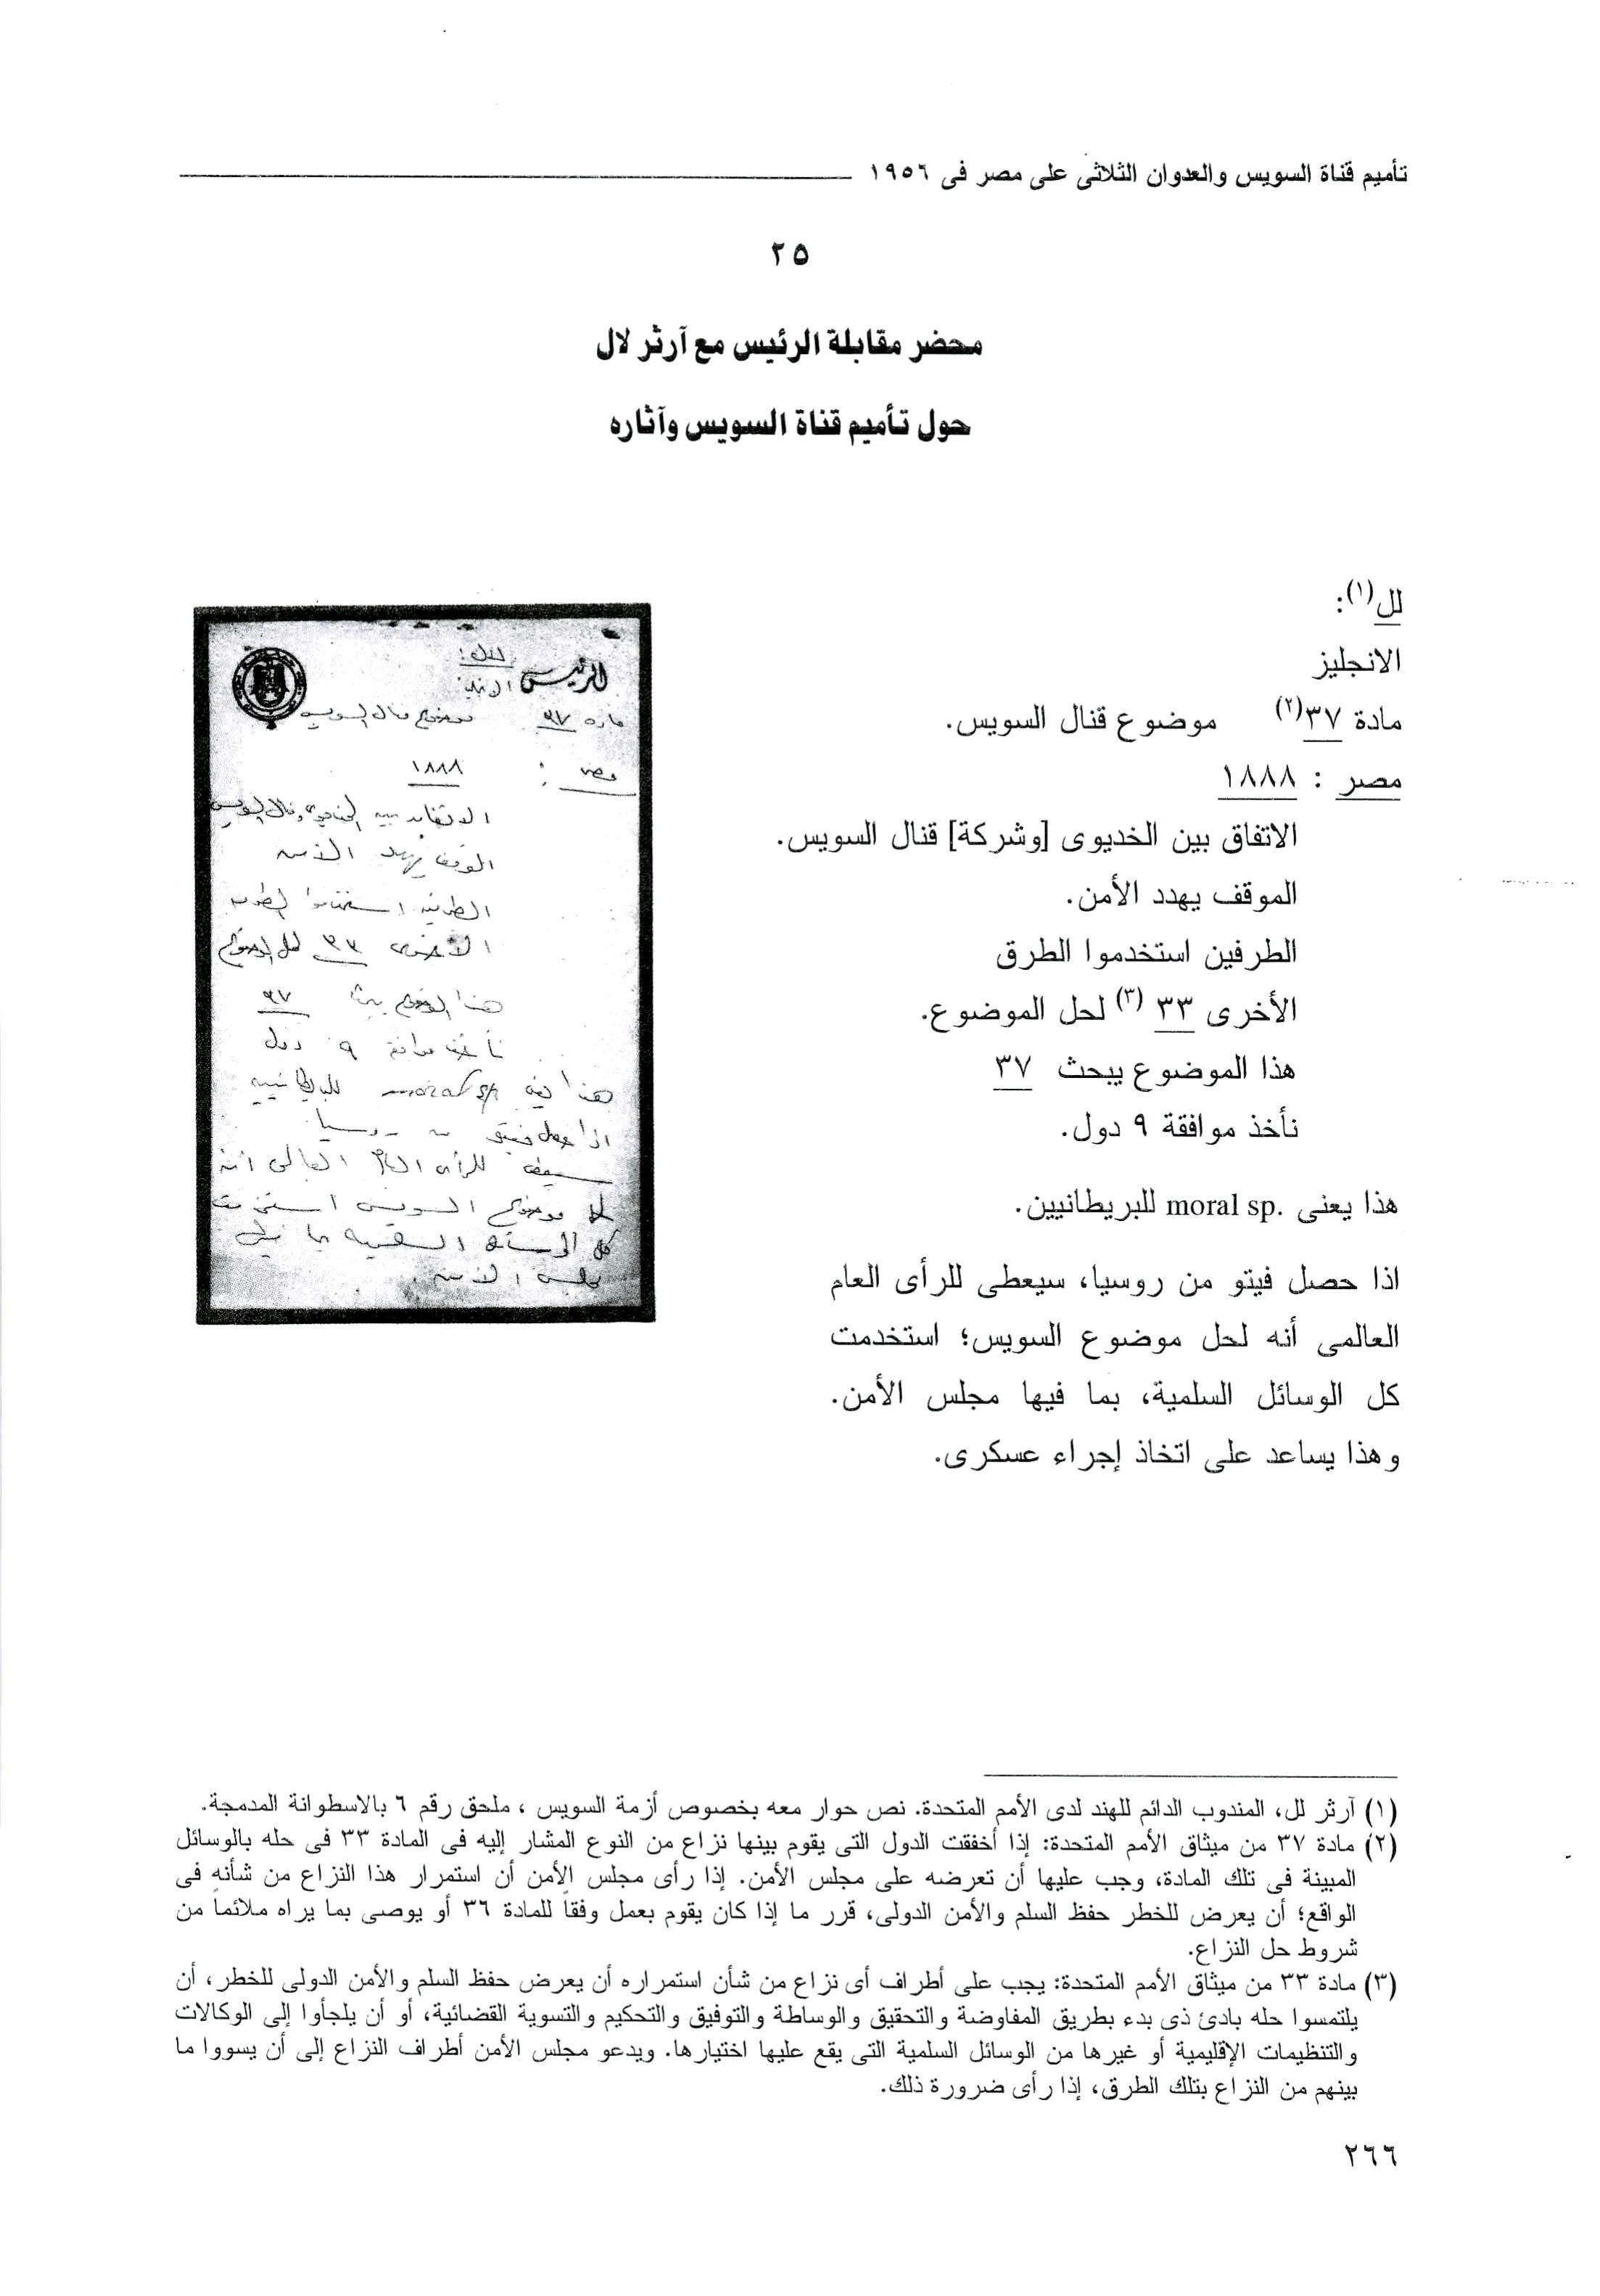 تأميم قناة السويس والعدوان الثلاثى على مصر فى ١٩٥٦
٢٥
محضر مقابلة الرئيس مع آرثر لال
حول تأميم قناة السويس وآثاره
لل(١):
الانجليز
مادة ٣٧(٢) موضوع قنال السويس.
مصر : ١٨٨٨
الاتفاق بين الخديوى [وشركة] قنال السويس.
الموقف يهدد الأمن.
الطرفين استخدموا الطرق
الأخرى ٣٣ (٣) لحل الموضوع.
هذا الموضوع يبحث ٣٧
نأخذ موافقة ٩ دول.
هذا يعنى moral sp. للبريطانيين.
اذا حصل فيتو من روسيا، سيعطى للرأى العام
العالمى أنه لحل موضوع السويس؛ استخدمت
كل الوسائل السلمية، بما فيها مجلس الأمن.
وهذا يساعد على اتخاذ إجراء عسكرى.
الرئيس
مادة ٣٧ موضوع قنال السويس
مصر : ١٨٨٨
الموقف يهدد الأمن
الطرفين استخدموا الطرق
الأخرى ٣٣ لحل الموضوع
هذا الموضوع يبحث ٣٧
نأخذ موافقة ٩ دول
هذا يعنى moral sp للبريطانيين
اذا حصل فيتو من روسيا
سيعطى للرأى العام العالمى أنه
لحل موضوع السويس استخدمت
كل الوسائل السلمية بما فيها
مجلس الأمن.
(١) آرثر لل، المندوب الدائم للهند لدى الأمم المتحدة. نص حوار معه بخصوص أزمة السويس ، ملحق رقم ٦ بالاسطوانة المدمجة.
(٢) مادة ٣٧ من ميثاق الأمم المتحدة: إذا أخفقت الدول التى يقوم بينها نزاع من النوع المشار إليه فى المادة ٣٣ فى حله بالوسائل
المبينة فى تلك المادة، وجب عليها أن تعرضه على مجلس الأمن. إذا رأى مجلس الأمن أن استمرار هذا النزاع من شأنه فى
الواقع؛ أن يعرض للخطر حفظ السلم والأمن الدولى، قرر ما إذا كان يقوم بعمل وفقاً للمادة ٣٦ أو يوصى بما يراه ملائماً من
شروط حل النزاع.
(٣) مادة ٣٣ من ميثاق الأمم المتحدة: يجب على أطراف أى نزاع من شأن استمراره أن يعرض حفظ السلم والأمن الدولى للخطر، أن
يلتمسوا حله بادئ ذى بدء بطريق المفاوضة والتحقيق والوساطة والتوفيق والتحكيم والتسوية القضائية، أو أن يلجأوا إلى الوكالات
والتنظيمات الإقليمية أو غيرها من الوسائل السلمية التى يقع عليها اختيارها. ويدعو مجلس الأمن أطراف النزاع إلى أن يسووا ما
بينهم من النزاع بتلك الطرق، إذا رأى ضرورة ذلك.
٢٦٦